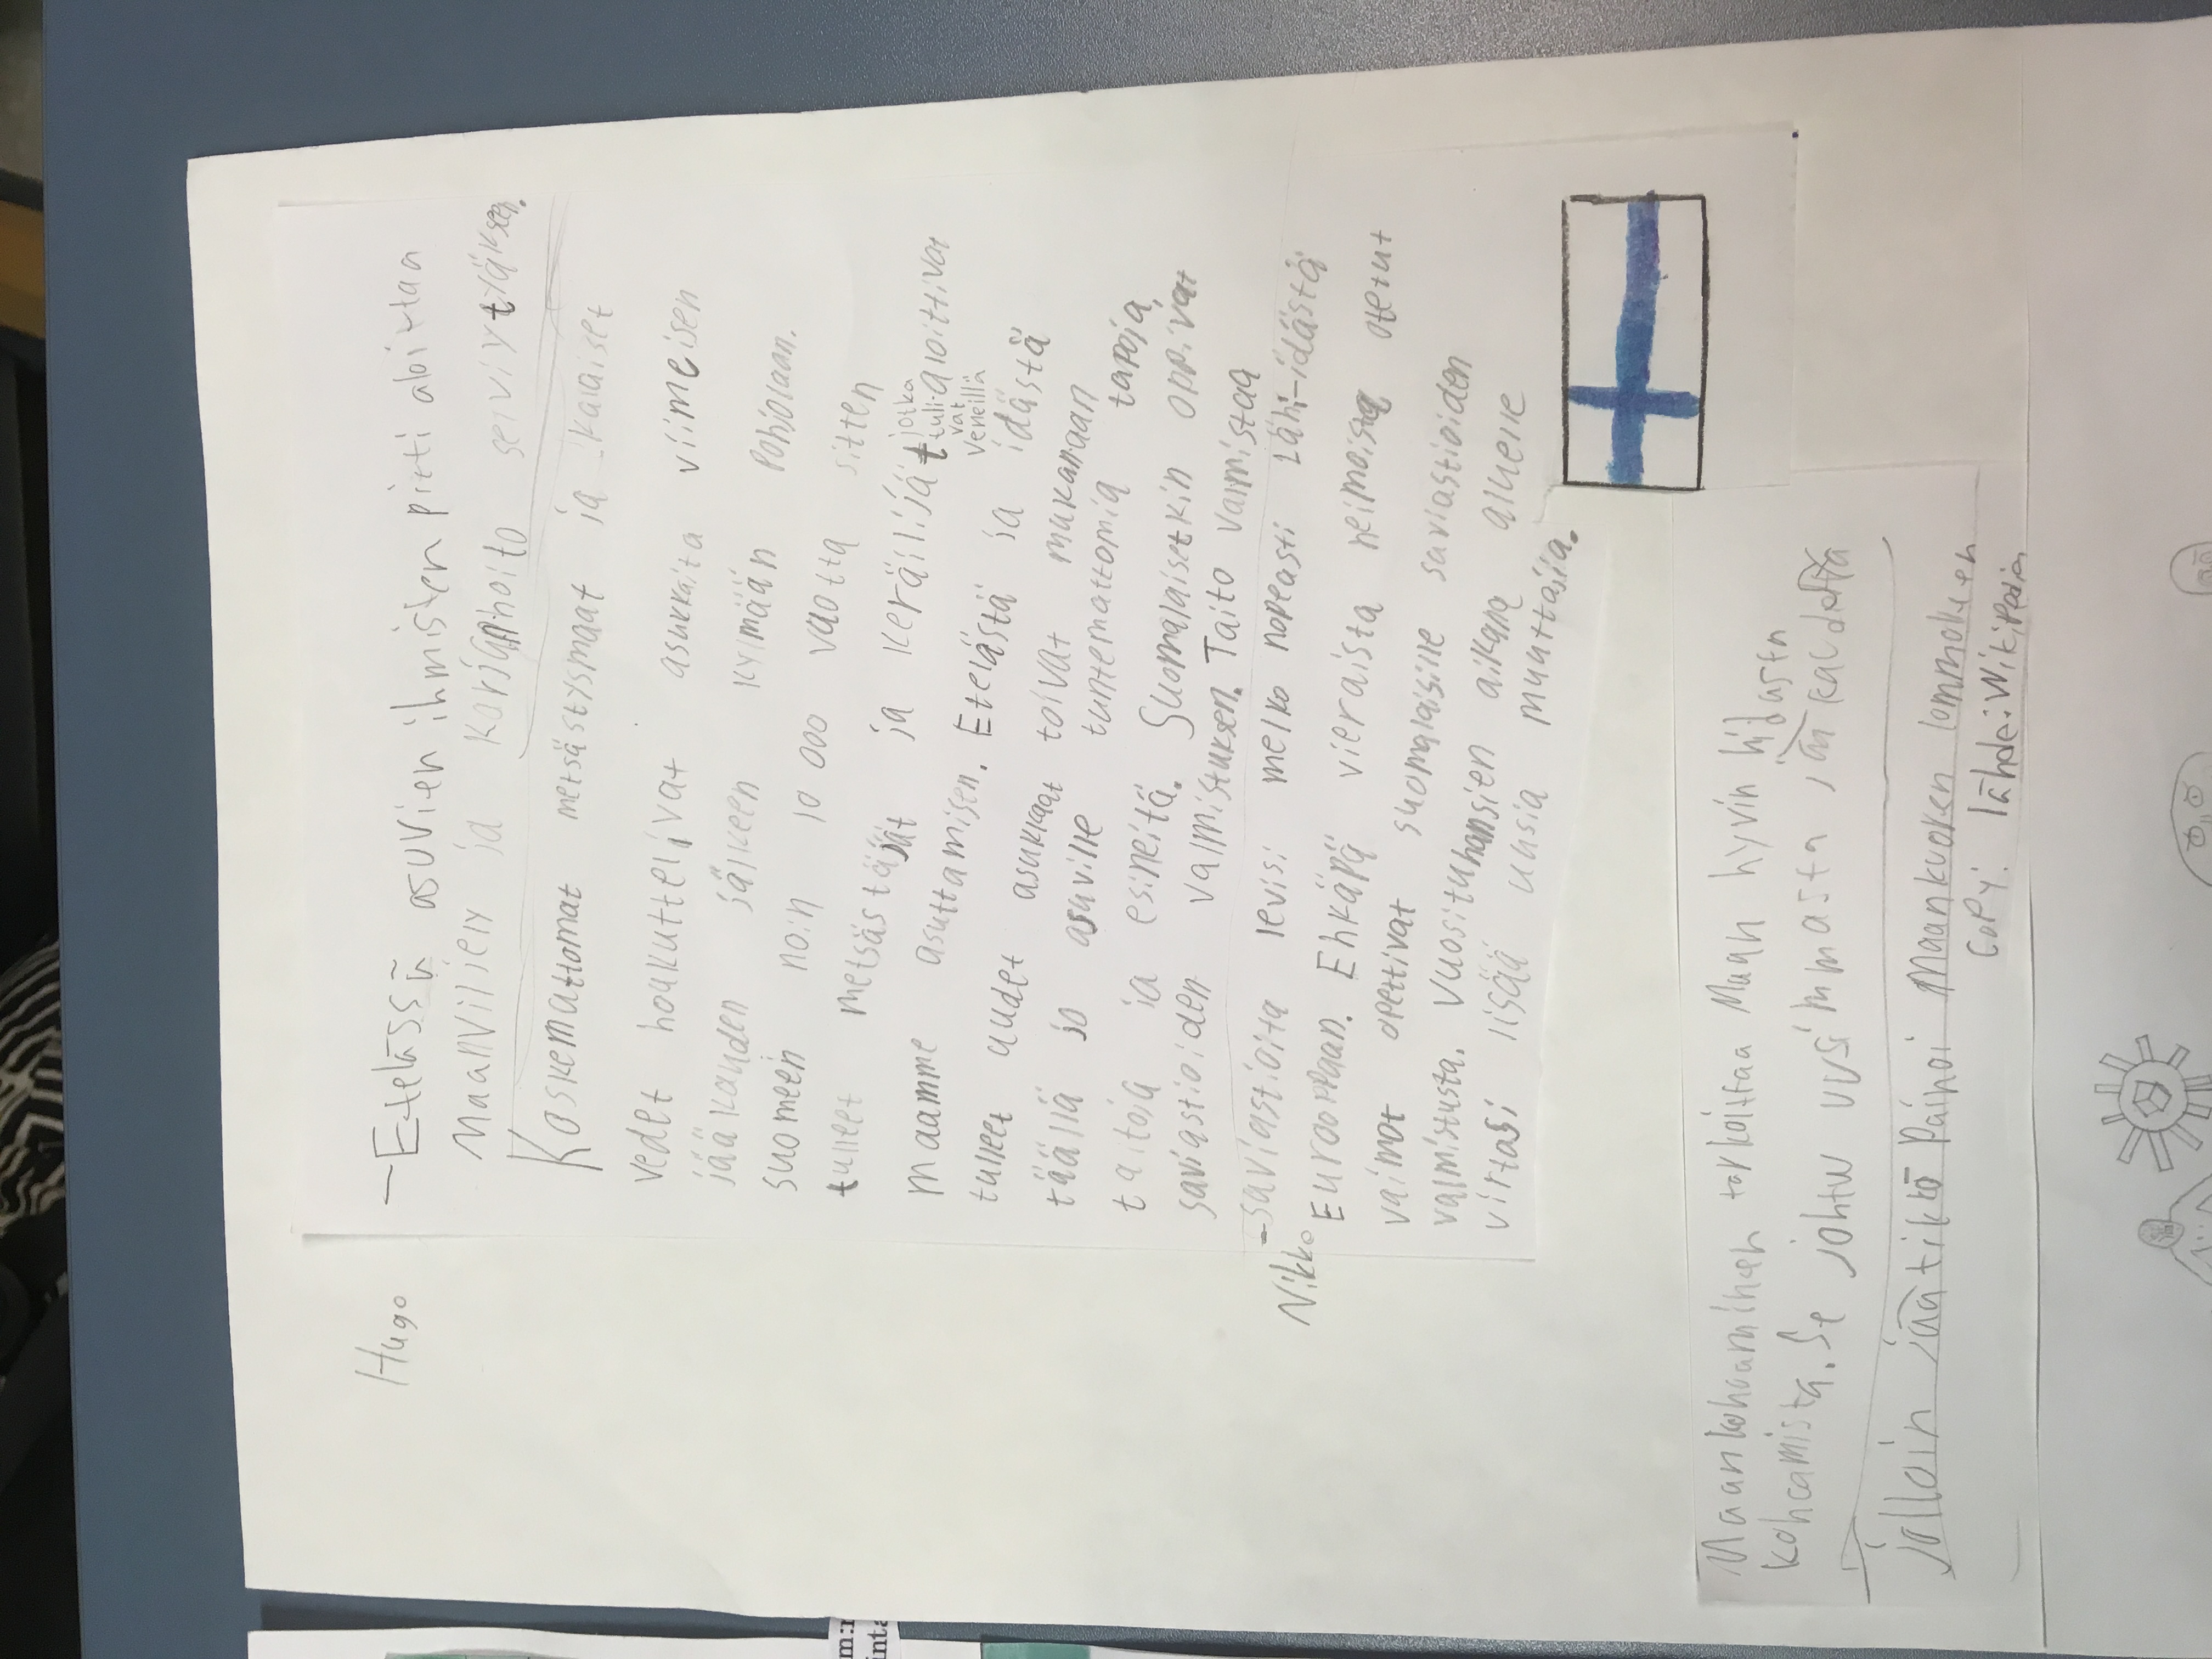 Hugo
- Etelässä asuvien ihmisten pitti aloittaa
Maanviljely ja karjanhoito selviytyäksen.
Koskemattomat metsästysmaat ja kalaiset
vedet houkuttelivat asukkaita viimeisen
jääkauden jälkeen kylmään Pohjolaan.
suomeen noin 10 000 vuotta sitten
tulleet metsästäjät ja keräilijät aloittivat
jotka
tuli-
vat
veneillä
maamme asuttamisen. Etelästä ja idästä
tulleet uudet asukkaat toivat mukanaan
täällä jo asuville tuntemattomia tapoja,
taitoja ja esineitä. Suomalaisetkin oppivat
saviastioiden valmistuksen. Taito valmistaa
Nikko
-saviastioita levisi melko nopeasti Lähi-idästä
Eurooppaan. Ehkäpä vieraista heimoista otetut
vaimot opettivat suomalaisille saviastioiden
valmistusta. Vuosituhansien aikana alueelle
virtasi lisää uusia muuttajia.
Maankohoaminen tarkoittaa Maan hyvin hidasta
kohoamista. Se johtuu viimmasta jääkaudesta
jolloin jäätikkö Painoi Maankuoren lommolleen
COPY: lähde: Wikipedia
m:r
inta